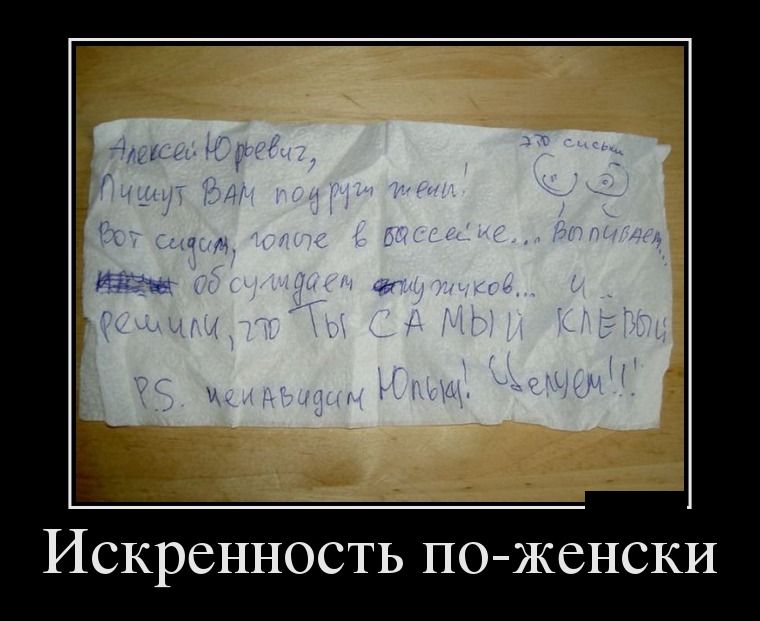 это сиськи
Алексей Юрьевич,
Пишут ВАМ подруги жены!
Вот сидим, голые в бассейне... Выпиваем...
обсуждаем мужиков... и..
решили, что Ты САМЫЙ КЛЁВЫЙ
P.S. ненавидим Юльку! Целуем!!!
Искренность по-женски